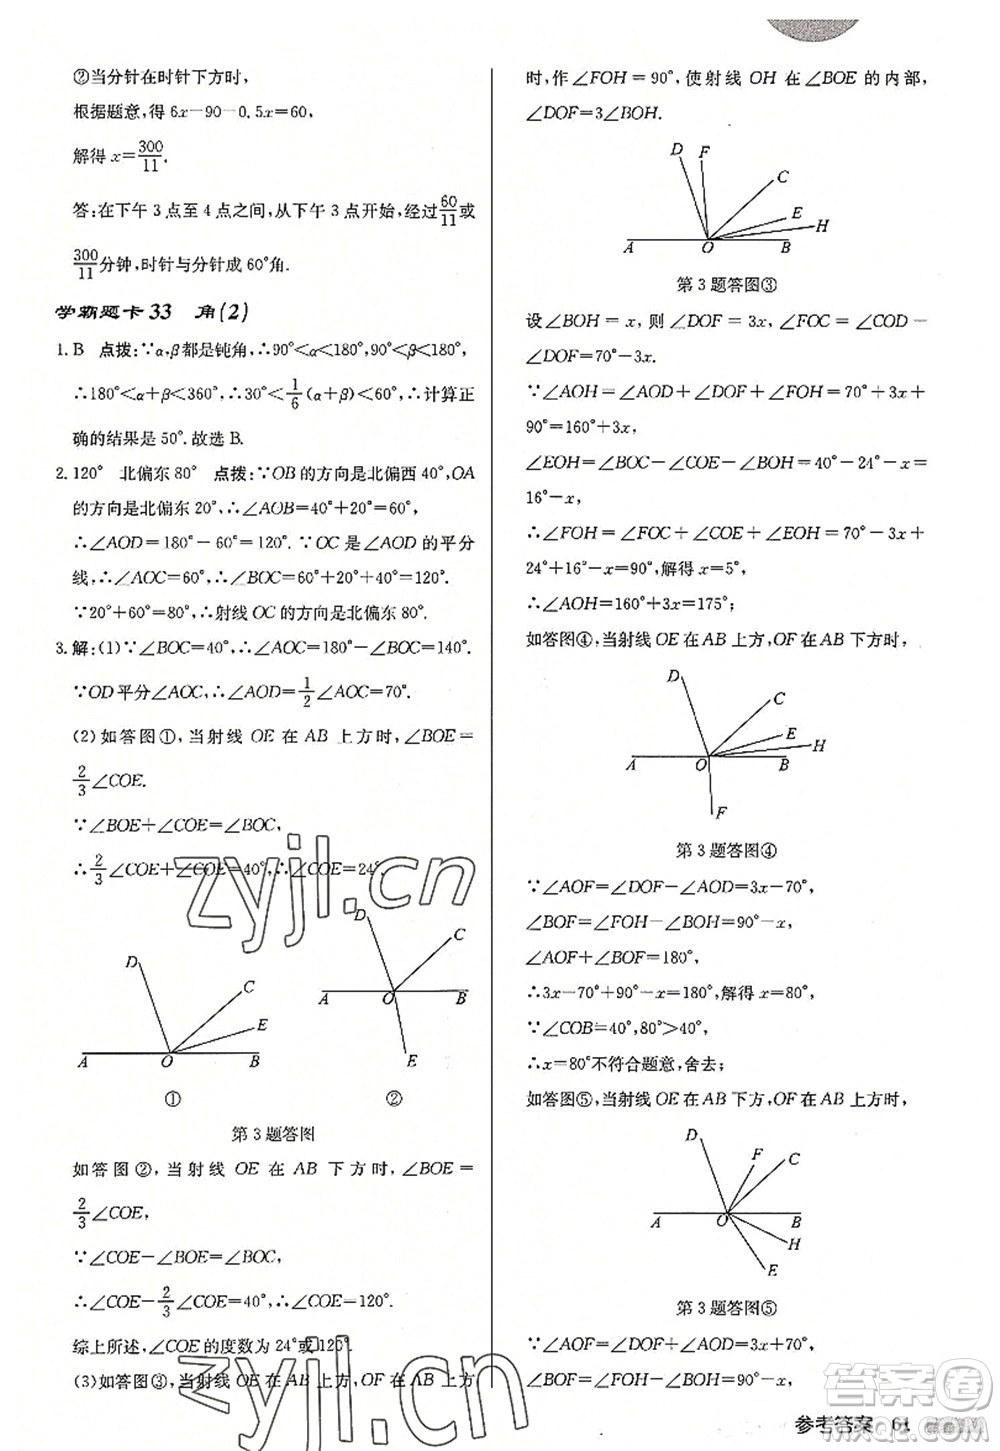 ②当分针在时针下方时,
根据题意,得 6x-90-0.5x=60,
解得 x=300/11.
答:在下午3点至4点之间,从下午3点开始,经过60/11或
300/11分钟,时针与分针成60°角.
学霸题卡33 角(2)
1. B 点拨:∵α,β都是钝角,∴90°<α<180°,90°<β<180°,
∴180°<α+β<360°,∴30°<1/6(α+β)<60°,∴计算正
确的结果是50°.故选B.
2. 120° 北偏东80° 点拨:∵OB的方向是北偏西40°,OA
的方向是北偏东20°,∴∠AOB=40°+20°=60°,
∴∠AOD=180°-60°=120°.∵OC是∠AOD的平分
线,∴∠AOC=60°,∴∠BOC=60°+20°+40°=120°.
∵20°+60°=80°,∴射线OC的方向是北偏东80°.
3. 解:(1)∵∠BOC=40°,∴∠AOC=180°-∠BOC=140°.
∵OD平分∠AOC,∴∠AOD=1/2∠AOC=70°.
(2)如答图①,当射线OE在AB上方时,∠BOE=
2/3∠COE.
∵∠BOE+∠COE=∠BOC,
∴2/3∠COE+∠COE=40°,∴∠COE=24°.
D C E A O B
①
D C A O B E
②
第3题答图
如答图②,当射线OE在AB下方时,∠BOE=
2/3∠COE,
∵∠COE-∠BOE=∠BOC,
∴∠COE-2/3∠COE=40°,∴∠COE=120°.
综上所述,∠COE的度数为24°或120°.
(3)如答图③,当射线OE在AB上方
时,作∠FOH=90°,使射线OH在∠BOE的内部,
∠DOF=3∠BOH.
D F C E H A O B
第3题答图③
设∠BOH=x,则∠DOF=3x,∠FOC=∠COD-
∠DOF=70°-3x.
∵∠AOH=∠AOD+∠DOF+∠FOH=70°+3x+
90°=160°+3x,
∠EOH=∠BOC-∠COE-∠BOH=40°-24°-x=
16°-x,
∴∠FOH=∠FOC+∠COE+∠EOH=70°-3x+
24°+16°-x=90°,解得x=5°,
∴∠AOH=160°+3x=175°;
如答图④,当射线OE在AB上方,OF在AB下方时,
D C E H A O B F
第3题答图④
∵∠AOF=∠DOF-∠AOD=3x-70°,
∠BOF=∠FOH-∠BOH=90°-x,
∠AOF+∠BOF=180°,
∴3x-70°+90°-x=180°,解得x=80°,
∵∠COB=40°,80°>40°,
∴x=80°不符合题意,舍去;
如答图⑤,当射线OE在AB下方,OF在AB上方时,
D F C A O B H E
第3题答图⑤
∵∠AOF=∠DOF+∠AOD=3x+70°,
∠BOF=∠FOH-∠BOH=90°-x,
参考答案 61
zyjl.cn
zyjl.cn
答案圈